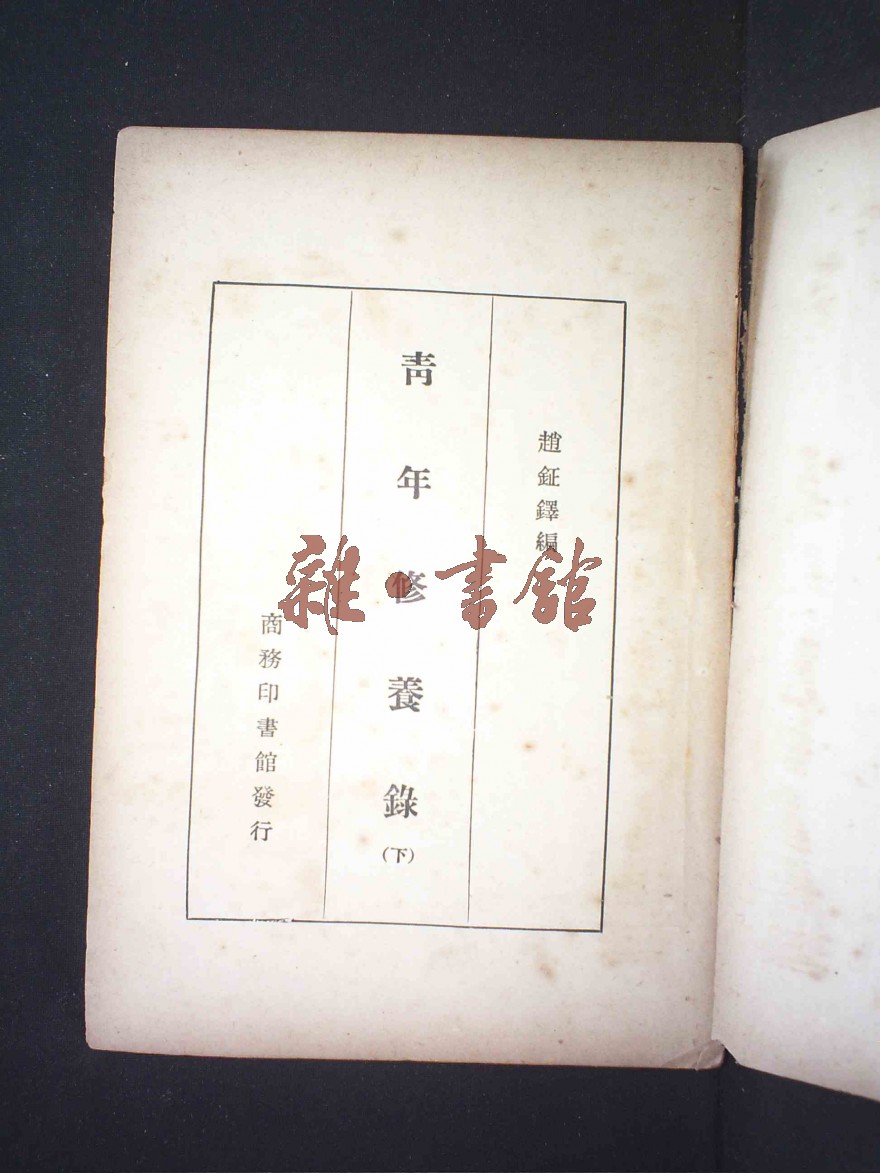 趙鉦鐸編
靑年修養錄(下)
商務印書館發行
雜·書館